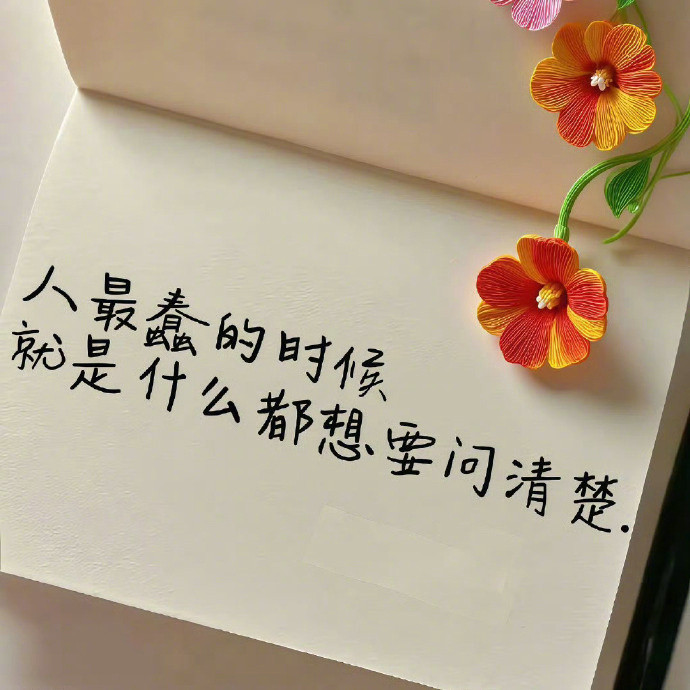 人最蠢的时候
就是什么都想要问清楚.